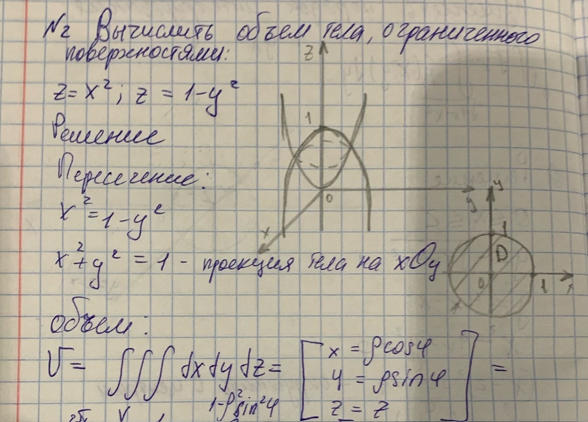 №2 Вычислить объем тела, ограниченного
поверхностями:
z = x²; z = 1-y²
Решение
Пересечение:
x² = 1-y²
x²+y² = 1 - проекция тела на xOy
объем:
V = ∭ dxdydz = [ x = ρcosφ
y = ρsinφ
z = z ] =
1-ρ²sin²φ
2π V
z
1
0
y
x
y
1
D
0
1
x